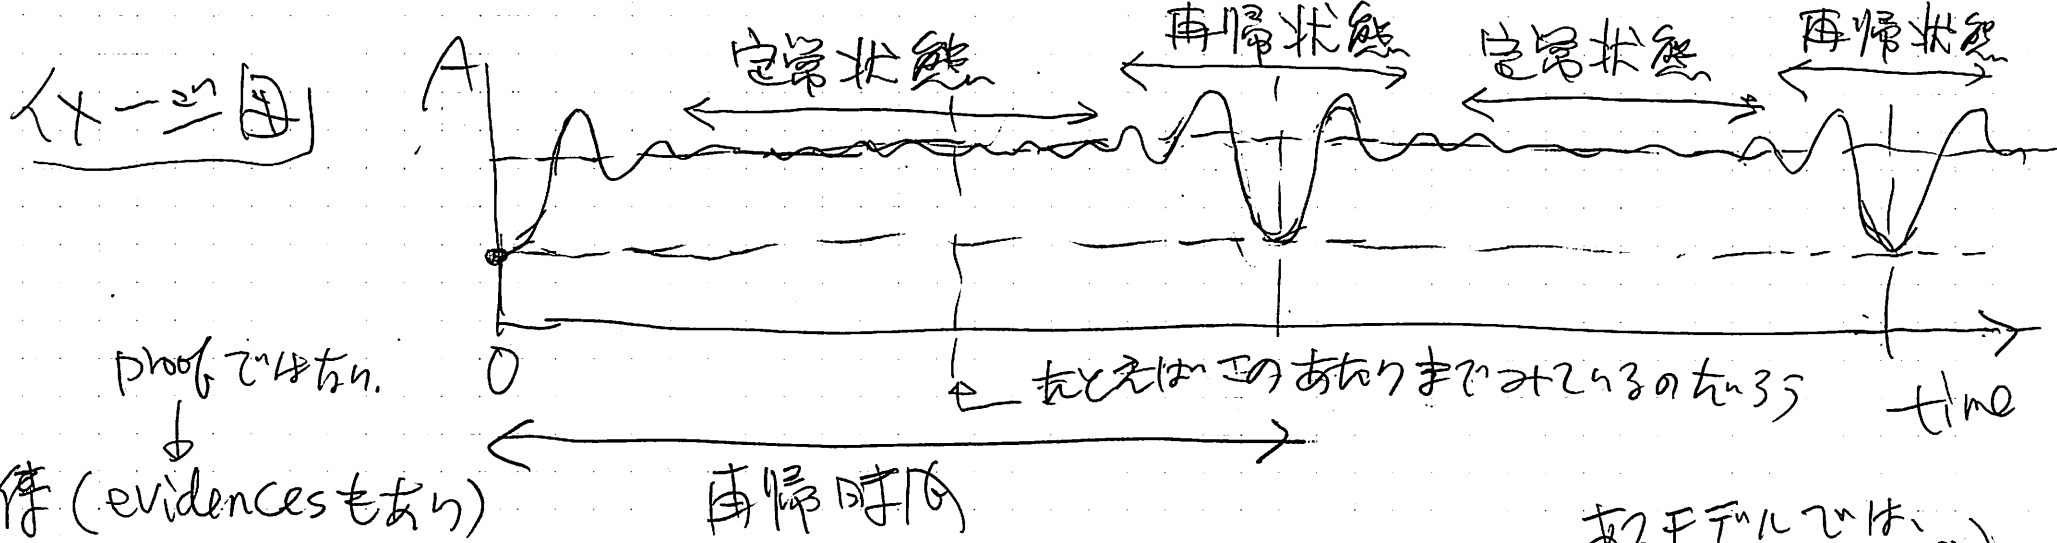 イメージ図
A
定常状態
再帰状態
定常状態
再帰状態
0
time
たとえばこのあたりまでみているのだろう
proofではない.
(evidencesもあり)
再帰時間
あるモデルでは、